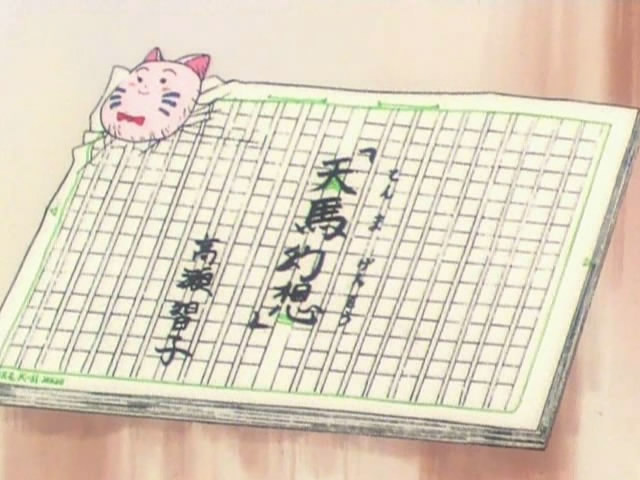 てんま げんそう
『天馬幻想』
高瀬智子